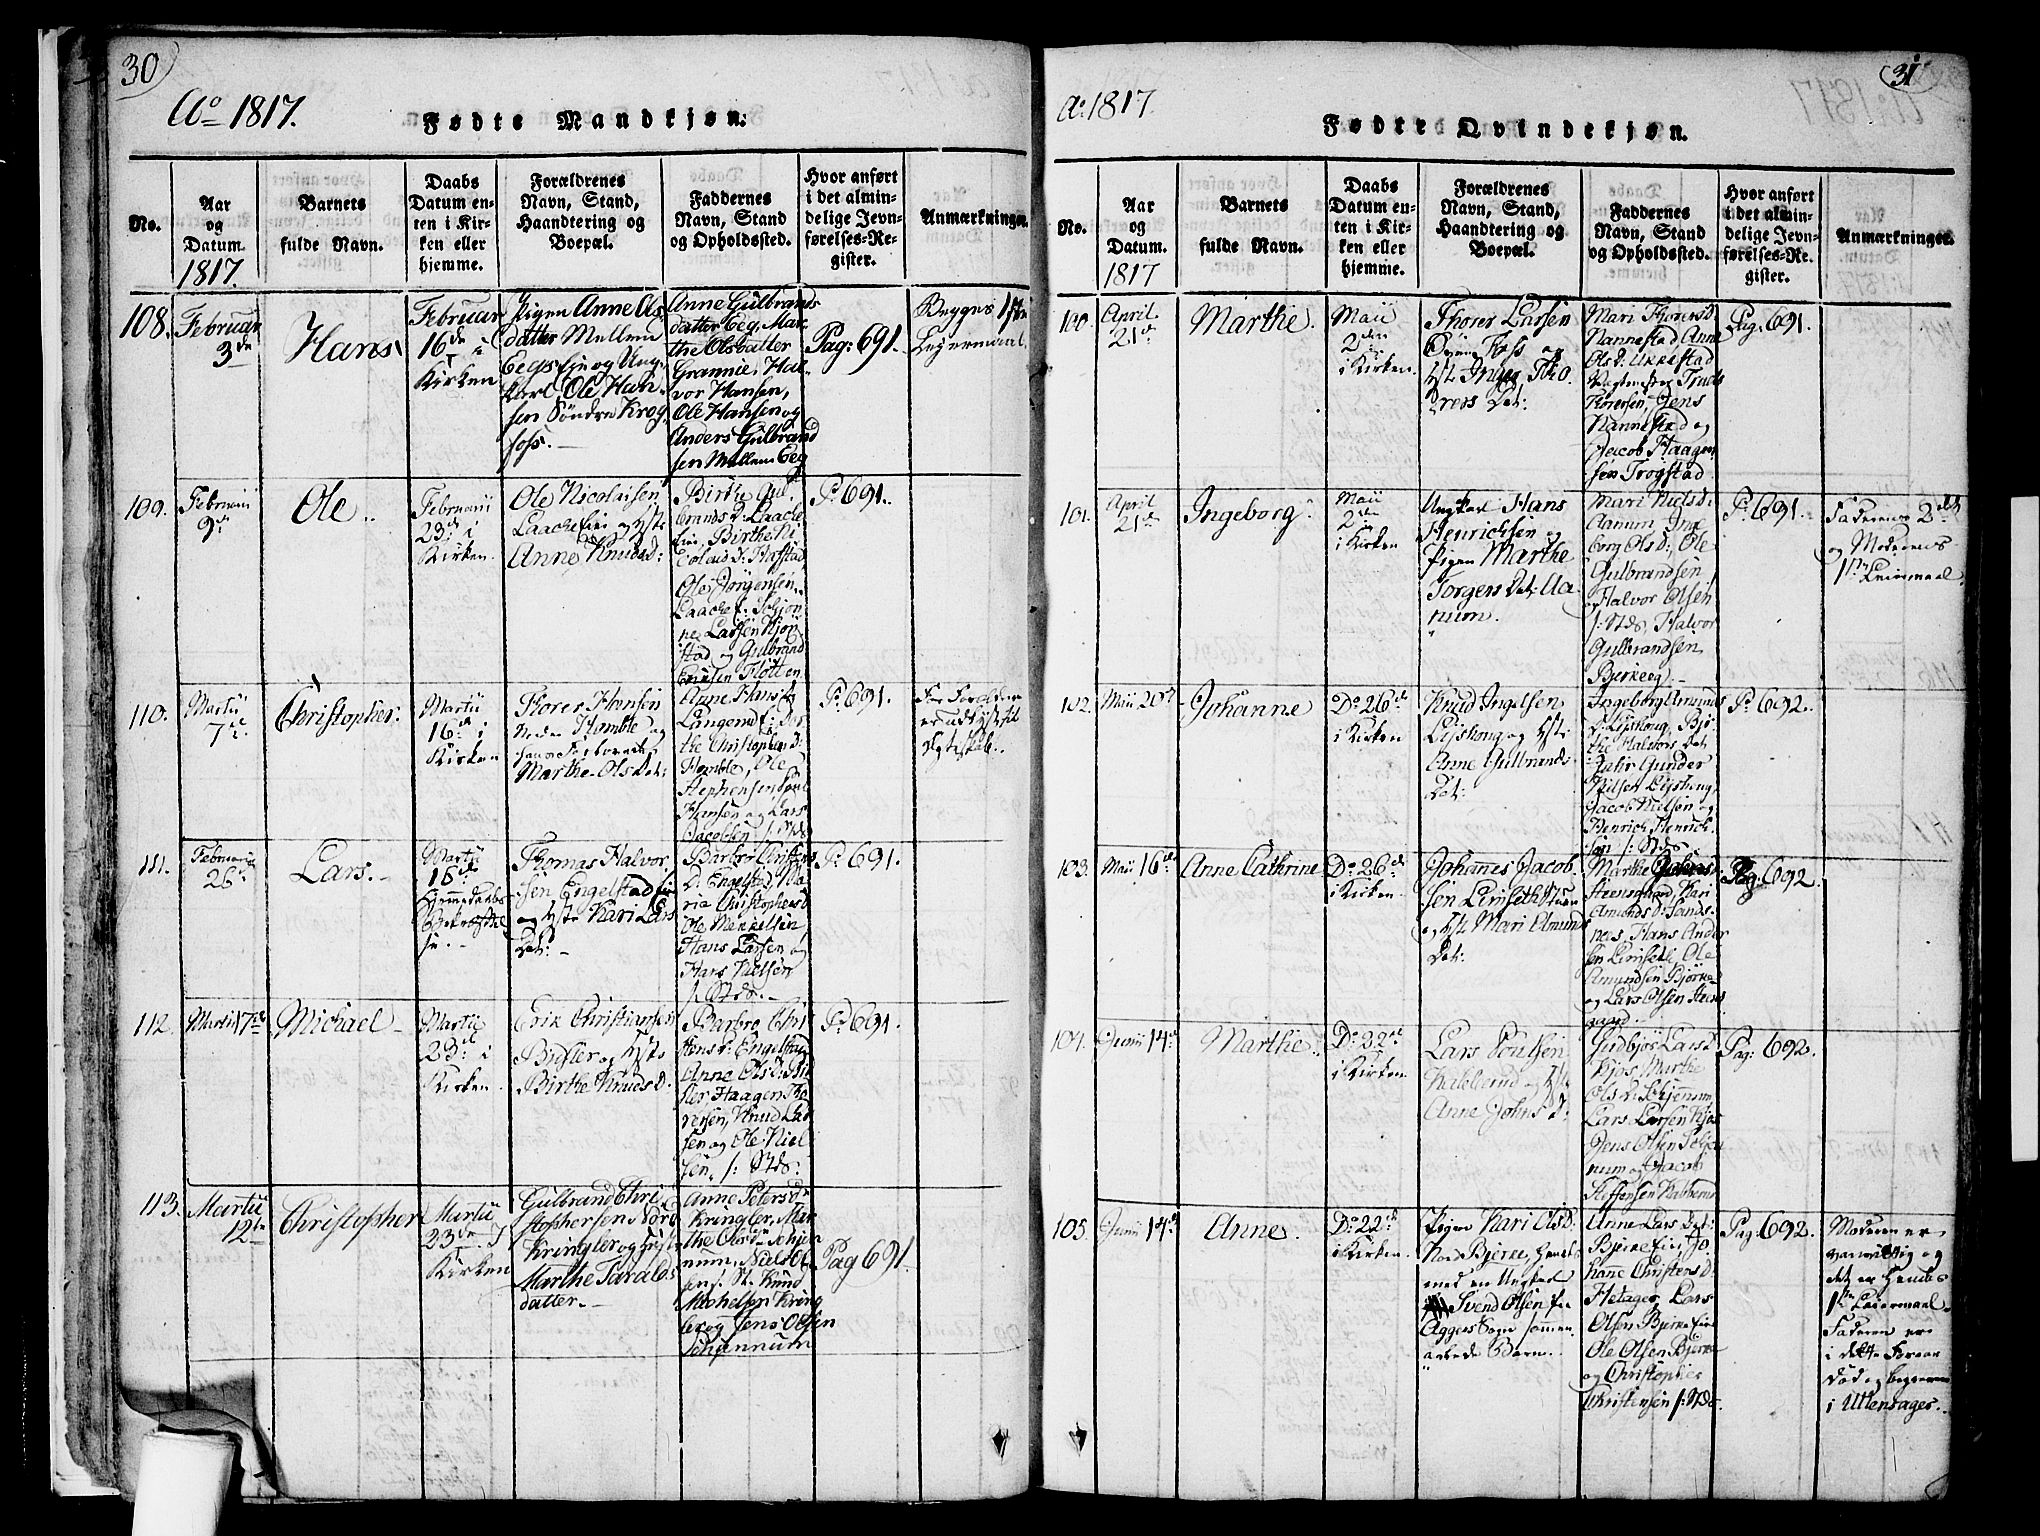 30
Aº 1817.
Fødte Mandkjøn.
No.
Aar
og
Datum.
1817.
Barnets
fulde Navn.
Daabs
Datum en-
ten i Kir-
ken eller
hjemme.
Forældrenes
Navn, Stand,
Haandtering og
Boepæl.
Faddernes
Navn, Stand
og Opholdssted.
Hvor anført
i det almin-
delige Jevn-
førelses-Re-
gister.
Anmærkninger.
108.
Februar
3de
Hans
Februar
16de i
Kirken
Pigen Anne Ols
datter Mellem
Eegs eje og Ung
karl Ole Han
sen Søndre Krog
foss.
Anne Gulbrands
datter Eeg, Mar
the Olsdatter
Grannie, Hal
vor Hansen,
Ole Hansen og
Anders Gulbrand
sen Mellem Eeg
Pag: 691.
Begges 1ste
Leyermaal.
109.
Februarii
9de
Ole
Februarii
23de i
Kirken.
Ole Nicolaisen
Laache eie og Hst
Anne Knudsd:
Birthe Gul
brands D: Laache
eie, Birthe Ni
colaid:
Ole Jørgensen
Laache
Larsen Kjøn
stad og Gulbrand
Eriksen Flotten
P: 691.
110.
Martii
7de
Christopher.
Martii
16de i
Kirken
Thorer Hansen
Neden Homble og
Marthe Ols Dat:
Anne Hans d
Langend
the Christophersd:
Homble, Ole
Stephensen
Hansen og Lars
Jacobsen /: Stds
P: 691.
For Forældrene
er udlyst til
Ægteskab.
111.
Februarii
26de
Lars.
Martii
16de
Hjemmedaabs
Thomas Halvor
sen Engelstad eie
og Hst: Kari Lars
Dat:
Barbro Christens
D: Engelstad, Ma
ria Christophers D
Ole Mikkelsen,
Hans Larsen og
Hans Nielsen
/: Stds.
P: 691.
112.
Martii 17de
Michael
Martii
23de i
Kirken.
Erik Christiansen
Bidsler og Hst:
Birthe Knuds D.
Barbro Chri
stens D: Engelstad
Anne Ols D: Bid
sler Haagen Tho
rersen, Knud Lar
sen og Ole Niel
sen /: Stds:
P: 691.
113.
Martii
12te
Christopher
Martii
23de I
Kirken
Gulbrand Chri
stophersen Nord
Kringler og Hst
Marthe Taralds
datter.
Anne Peters d
Kringler, Mar
the Ols D: Schjen
num, Niels Ol
sen /: St. Knud
Michelsen Kring
ler og Jens Olsen
Schjennum
Pag 691
31
Aº 1817.
Fødte Qvindekjøn.
No.
Aar
og
Datum.
1817
Barnets
fulde Navn.
Daabs
Datum en-
ten i Kir-
ken eller
hjemme.
Forældrenes
Navn, Stand,
Haandtering og
Boepæl.
Faddernes
Navn, Stand
og Opholdssted.
Hvor anført
i det almin-
delige Jevn-
førelses-Re-
gister.
Anmærkninger.
100.
April
21de
Marthe.
Maii
2den
i Kirken.
Thorer Larsen
Foss og
Hst: Inger Tho
rers Dat:
Mari Thorers D
Nannestad Anne
Ols d: Ukkestad
Truls
Thoresen, Jens
Nannestad og
Jacob Haagen
sen Trogstad.
Pag: 691.
101.
April
21de
Ingeborg.
Maii
2den
i Kirken
Ungkar Hans
Henrichsen og
Pigen Marthe
Torgers Dat: Aa
num.
Mari Niels D:
Aanum Inge
borg Ols D:, Ole
Gulbrandsen
Halvor Olsen
/: Stds, Halvor
Gulbrandsen
Bjerkeeg
P: 691.
Faderens 2det
og Moderens
1ste Leiermaal.
102.
Maii 20de
Johanne
Do 26de
i Kirken
Knud Ingelsen
Lejshoug og Hst:
Anne Gulbrands
Dat:
Ingeborg Amunds
D: Lejshoug, Bir
the Halvors Dat
Gunder
Nilsen Lejshoug,
Jacob Nielsen og
Henrich Henrich
sen /: Stds
P: 692.
103.
Maii 16de
Anne Cathrine
Do 26de
i Kirken.
Johannes Jacob
sen Limseth
og Hst: Mari Amunds
Dat:
Marthe
Steensgaard, Kari
Amunds D: Sands
næs, Hans Ander
sen Limseth, Ole
Amundsen Bjørke
og Lars Olsen Steens
gaard.
Pag: 692.
104.
Junii 14de
Marthe.
Do 22de
i Kirken.
Lars Poulsen
Kalebund og Hst:
Anne Johns D:
Gudbjør Lars D
Kjos, Marthe
Ols D: Schjennum,
Lars Larsen Kjos
Jens Olsen Schjen
num og Jacob
Steffensen
Pag: 692.
105.
Junii 14de
Anne.
Do 22de
i Kirken.
Pigen Kari Ols D:
Bjerke,
med en Ungkar
Svend Olsen fra
Agger som sammen
Barn.
Anne Lars Dat:
Bjerke eie, Jo
hanne Christens D:
Hetager, Lars
Olsen Bjerke eie
Ole Olsen Bjerke
og Christopher
Christensen /: Stds.
Pag: 692.
Moderen er
vanvittig og
det er Hendes
1ste Leiermaal
Faderen er
i dette Foraar
død og begraven
i Ullensager.